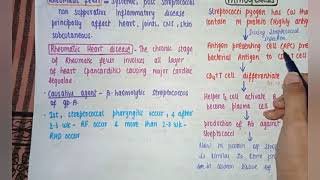 Rheumatic fever = Systemic, post streptococcal
non suppurative inflammatory disease
principally affect heart, joints, CNS, skin
subcutaneous.
Rheumatic Heart disease - The chronic stage
of Rheumatic fever involves all layer
of heart (pancarditis) causing major cardiac
sequelae
Causative agent - β-haemolytic Streptococcus
of gp A
1st, Streptococcal pharyngitis occur, & after
2-3 wk - RF occur & more than 2-3 wk -
RHD occur
Pathogenesis
Streptococcus pyogen has cell
contain M protein (highly antig
During streptococcal
infection
Antigen presenting cell (APC) pre
bacterial Antigen to CD4 T cell
CD4 T cell differentiate
Helper & cell activate
become plasma cell
production of Ab against
Streptococci
Now M protein of
is similar to some pro
in certain tissue